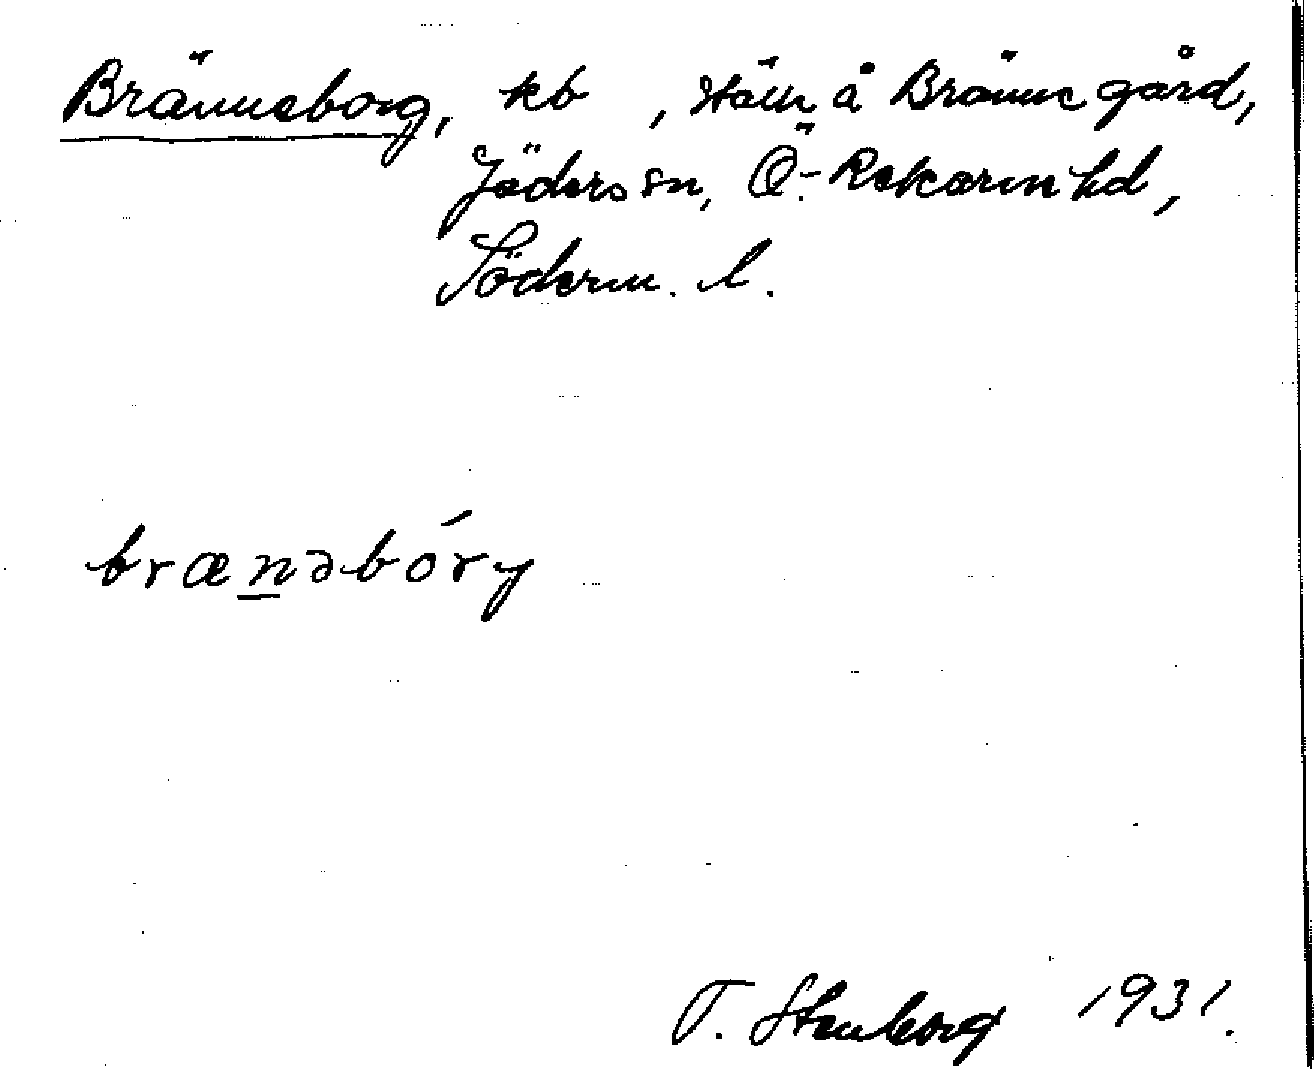 Bränneborg, kb , ställe å Bränne gård,
Jäders sn, Ö.-Rekarne hd,
Söderm. l.
brænəbórg
T. Stenborg 1931.